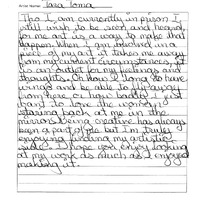 Artist Name: Tara Toma
Tho I am currently in prison I
still wish to be seen and heard
for me art is a way to make that
happen. When I am involved in a
piece of my art it takes me away
from my current circumstances, it
is an outlet for my feelings and
thoughts, on how I long to have
wings and be able to fly away
from here, or how badly I just
want to love the woman
staring back at me in the
mirror. Being creative has always
been a part of me but I'm truly
enjoying finding my artistic
side. I hope you enjoy looking
at my work as much as I enjoyed
making it.